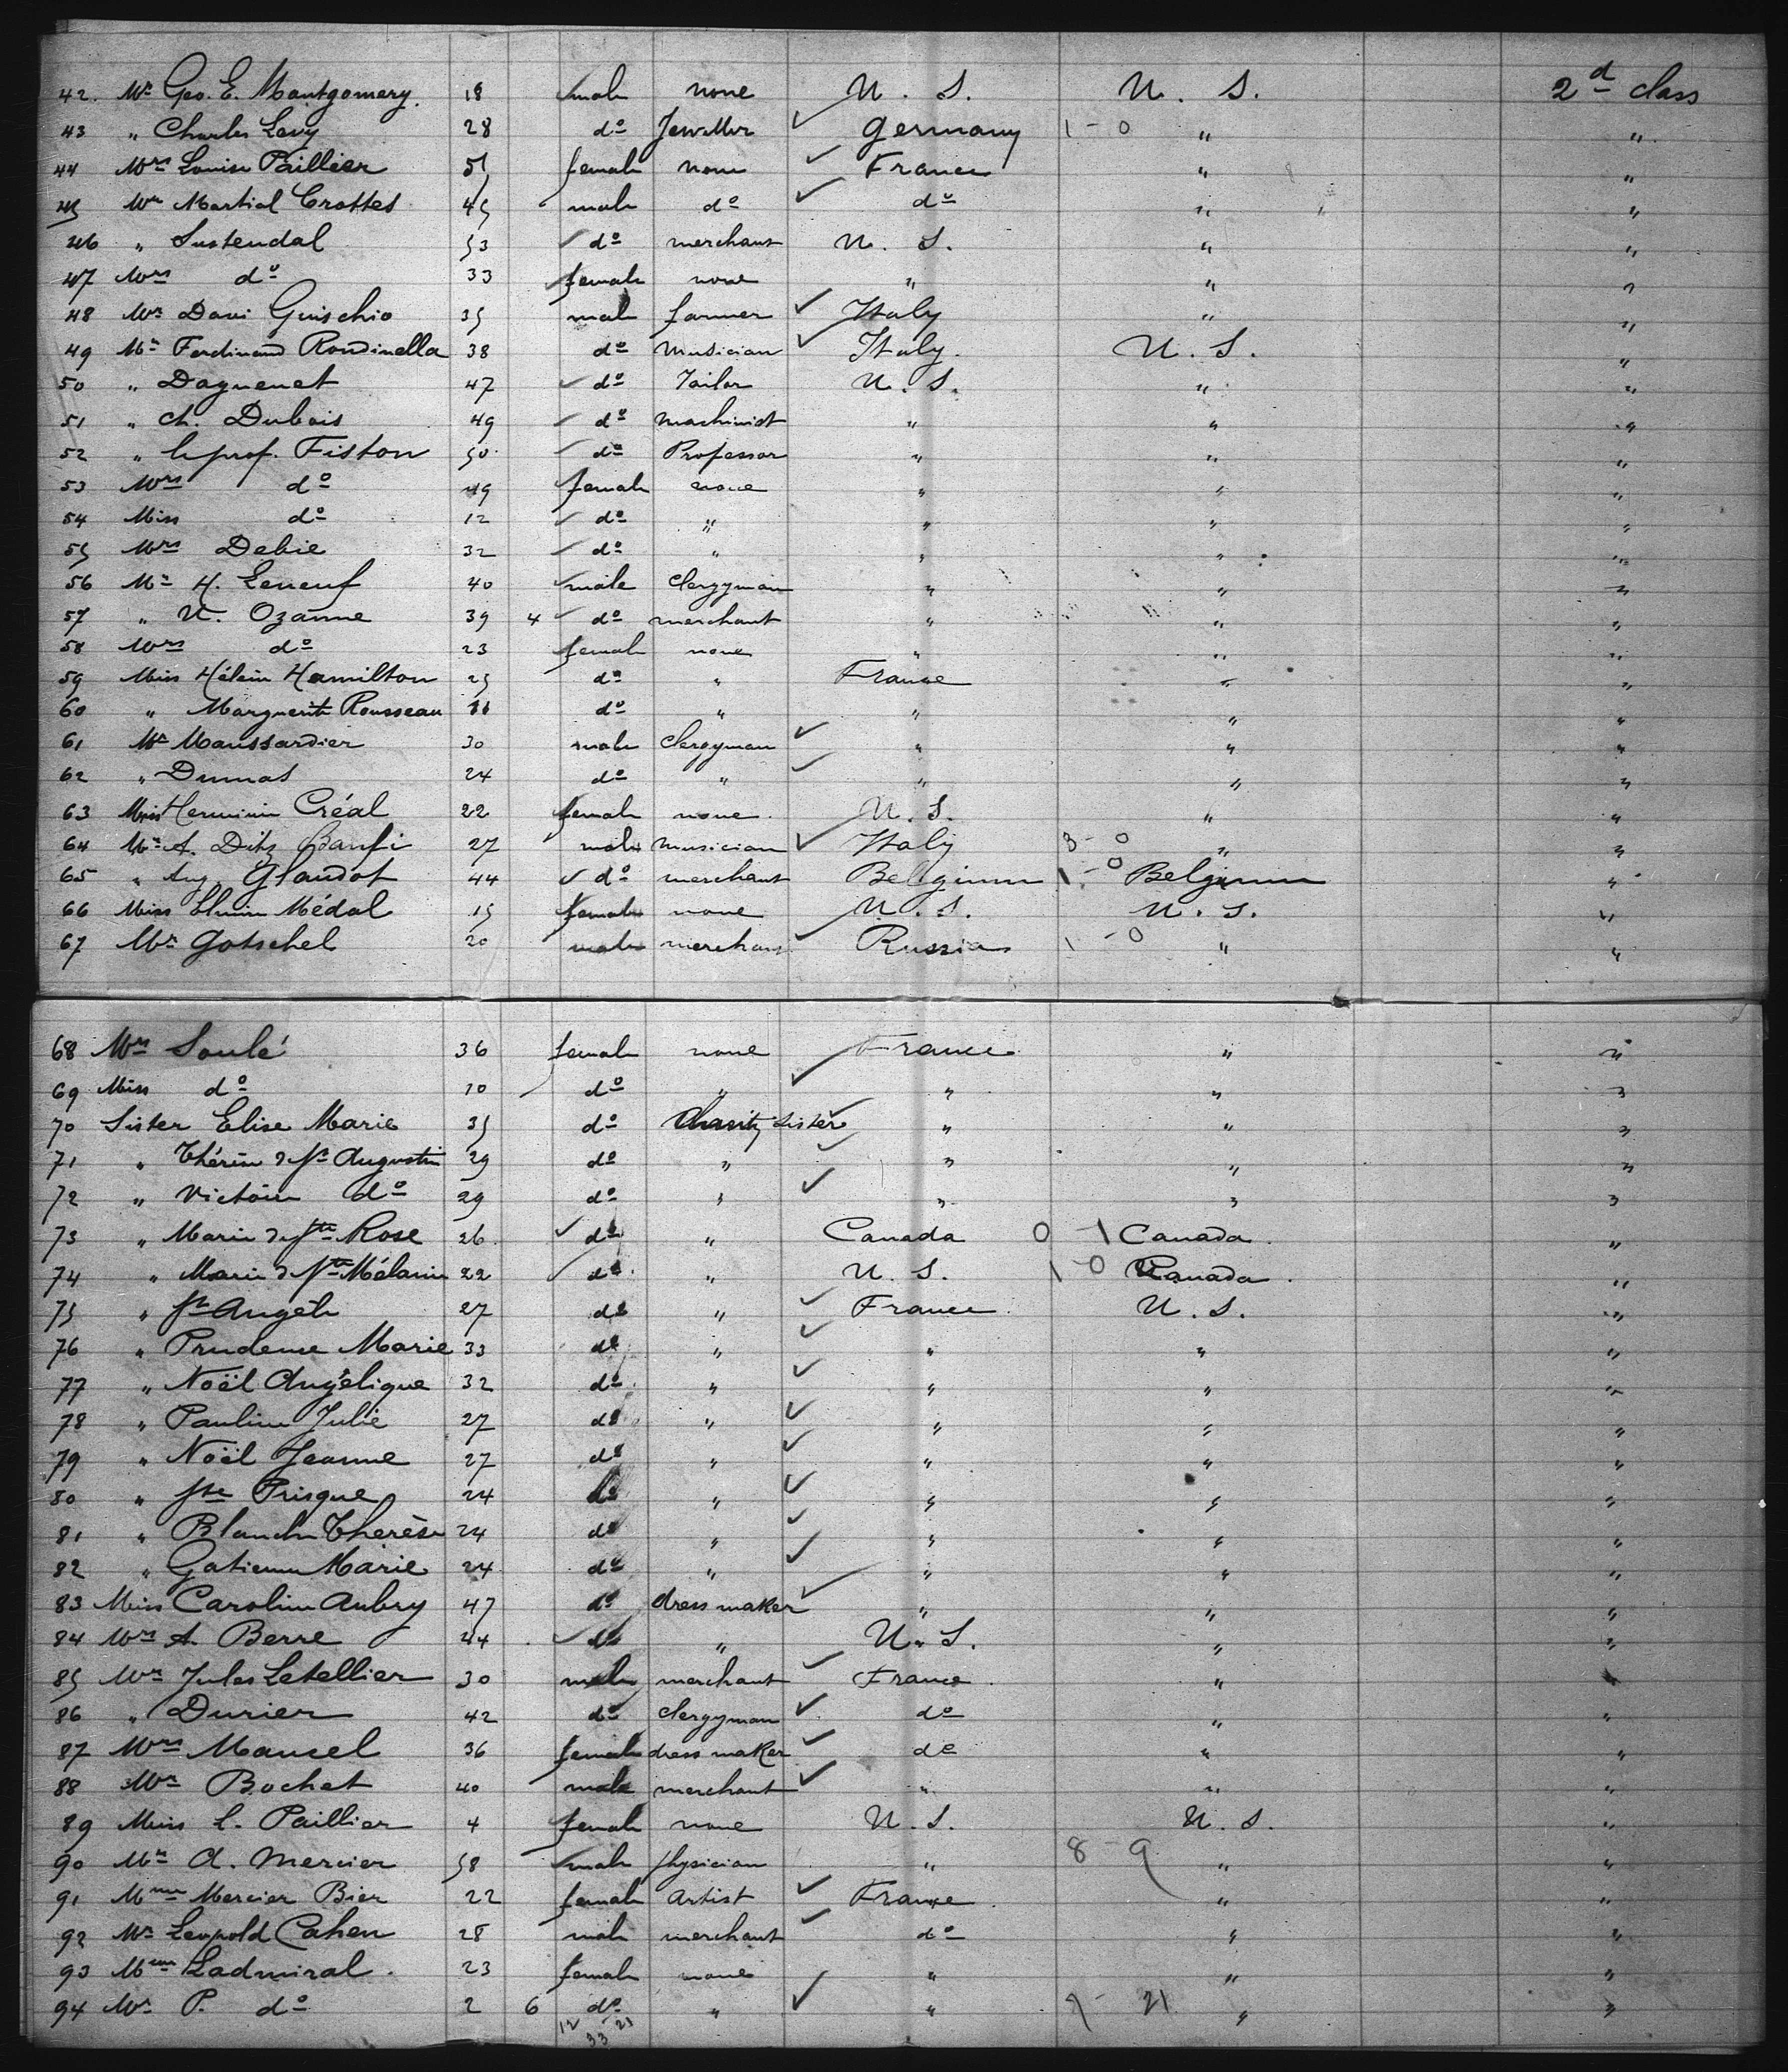 42. Mr Geo. E. Montgomery 18 male none U. S. U. S. 2d class
43 " Charles Levy 28 do Jeweller Germany 1 - 0 " "
44 Mrs Louise Paillier 51 female none France " "
45 Mr Martial Crottes 45 male do do " "
46 " Sustendal 53 do merchant U. S. " "
47 Mrs do 33 female none " " "
48 Mr Davi Guischio 35 male farmer Italy " "
49 Mr Ferdinand Rondinella 38 do musician Italy. U. S. "
50 " Daguenet 47 do Tailor U. S. " "
51 " Ch. Dubois 49 do machinist " " "
52 " le prof. Fiston 50 do Professor " " "
53 Mrs do 49 female none " " "
54 Miss do 12 do " " " "
55 Mrs Debie 32 do " " " "
56 Mr H. Leneuf 40 male clergyman " " "
57 " U. Ozanne 39 4 do merchant " " "
58 Mrs do 23 female none " " "
59 Miss Hélène Hamilton 25 do " France " "
60 " Marguerite Rousseau do " " " "
61 Mr Maussardier 30 male clergyman " " "
62 " Dumas 24 do " " " "
63 Miss Herminie Créal 22 female none U. S. " "
64 Mr A. Banfi 27 male musician Italy 3 - 0 " "
65 " Aug. Glandot 44 do merchant Belgium 1 - 0 Belgium "
66 Miss Médal 15 female none U. S. U. S. "
67 Mr Gotschel 20 male merchant Russia 1 - 0 " "
68 Mrs Soulé 36 female none France " "
69 Miss do 10 do " " " "
70 Sister Elise Marie 35 do Charity Sister " " "
71 " Thérèse de St Augustin 29 do " " " "
72 " Victoire do 29 do " " " "
73 " Marie de Ste Rose 26 do " Canada 0 - 1 Canada "
74 " Marie de Ste Mélanie 22 do " U. S. 1 - 0 Canada. "
75 " St Angèle 27 do " France U. S. "
76 " Prudence Marie 33 do " " " "
77 " Noël Angélique 32 do " " " "
78 " Pauline Julie 27 do " " " "
79 " Noël Jeanne 27 do " " " "
80 " Ste Prisque 24 do " " " "
81 " Blanche Thérèse 24 do " " " "
82 " Gatienne Marie 24 do " " " "
83 Miss Caroline Aubry 47 do dress maker " " "
84 Mrs A. Berre 44 do " U. S. " "
85 Mr Jules Letellier 30 male merchant France " "
86 " Durier 42 do clergyman do " "
87 Mrs Mancel 36 female dress maker do " "
88 Mr Bochet 40 male merchant " " "
89 Miss L. Paillier 4 female none U. S. U. S. "
90 Mr A. Mercier 58 male physician " 8 - 9 " "
91 Mme Mercier Bier 22 female artist France " "
92 Mr Leopold Cahen 28 male merchant do " "
93 Mme Ladmiral. 23 female none " " "
94 Mr P. do 2 6 do " " 21 " "
12 21
33